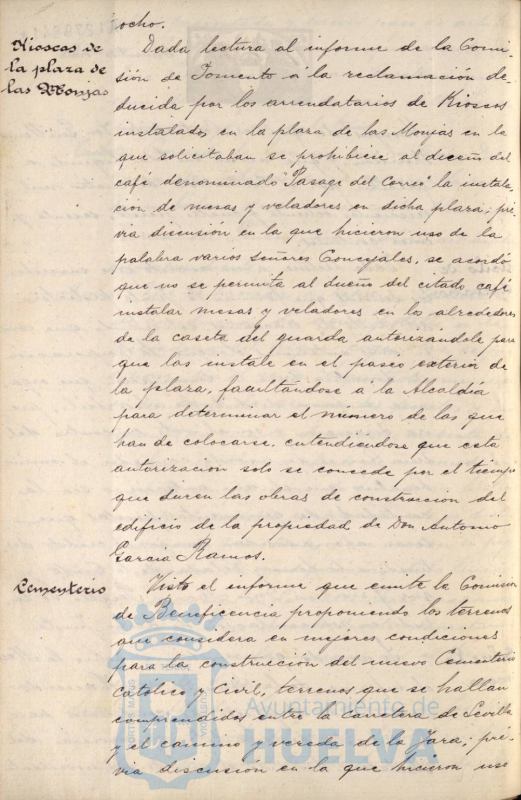 ocho.
Kioscos de
la plaza de
las Monjas
Dada lectura al informe de la Comi-
sión de Fomento á la reclamación de-
ducida por los arrendatarios de Kioscos
instalados en la plaza de las Monjas en la
que solicitaban se prohibiese al dueño del
café denominado "Pasage del Correo" la instala-
cion de mesas y veladores en dicha plaza; pré-
via discusión en la que hicieron uso de la
palabra varios señores Concejales, se acordó
que no se permita al dueño del citado café
instalar mesas y veladores en los alrededores
de la caseta del guarda autorizándole para
que las instale en el paseo exterior de
la plaza, facultándose á la Alcaldía
para determinar el número de las que
han de colocarse, entendiéndose que esta
autorizacion solo se concede por el tiempo
que duren las obras de construccion del
edificio de la propiedad de Don Antonio
García Ramos.
Cementerio
Visto el informe que emite la Comision
de Beneficencia proponiendo los terrenos
que considera en mejores condiciones
para la construcción del nuevo Cementerio
Católico y Civil, terrenos que se hallan
comprendidos entre la carretera de Sevilla
y el camino y vereda de la Jara; pré-
via discusión en la que hicieron uso
Ayuntamiento de
HUELVA